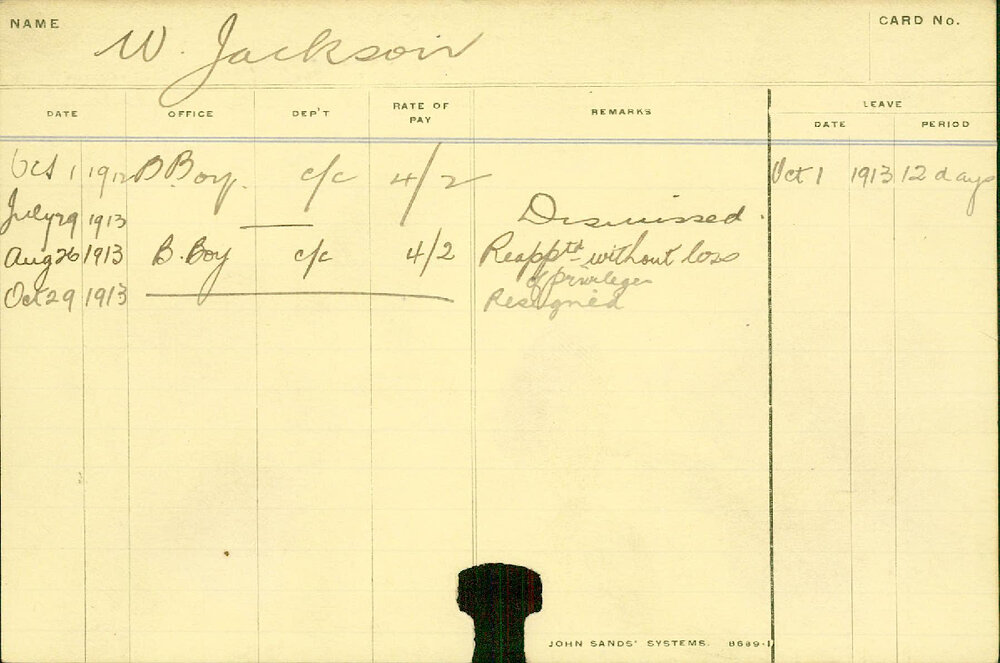 NAME W. Jackson CARD No.
DATE OFFICE DEP'T RATE OF PAY REMARKS LEAVE
DATE PERIOD
Oct 1 1912 B. Boy. c/c 4/2 Oct 1 1913 12 days
July 29 1913 — Dismissed.
Aug 26 1913 B. Boy c/c 4/2 Reapptd without loss
of privileges
Oct 29 1913 — Resigned
JOHN SANDS' SYSTEMS. 8689-1